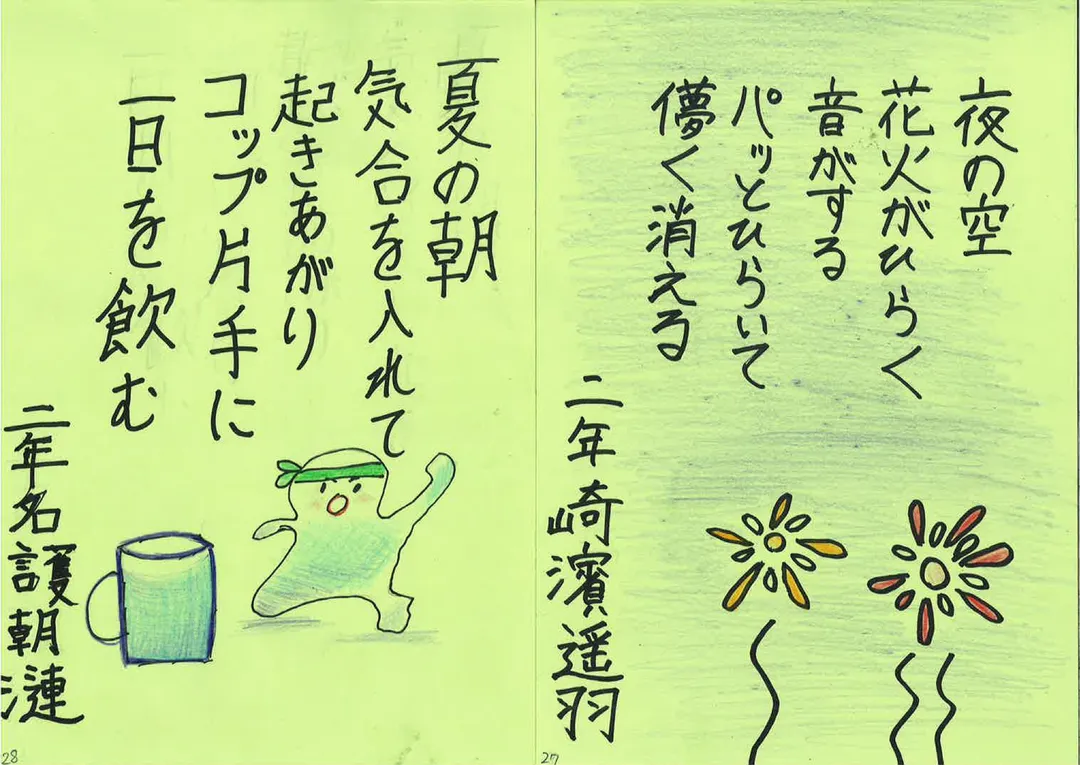 夜の空
花火がひらく
音がする
パッとひらいて
儚く消える
二年崎濱遥羽
27
夏の朝
気合を入れて
起きあがり
コップ片手に
一日を飲む
二年名護朝漣
28